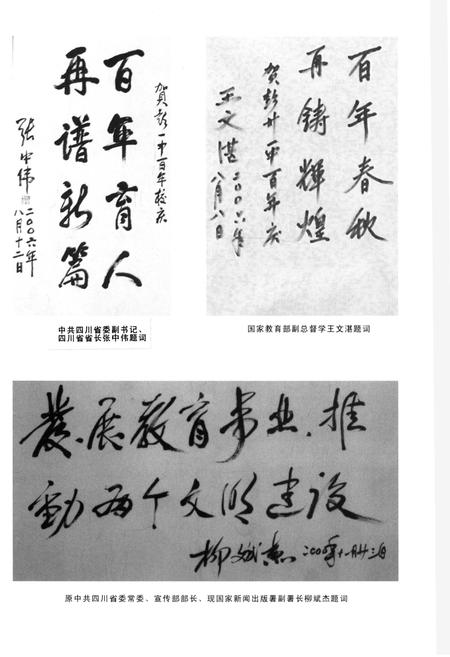 贺彭一中百年校庆
百年育人
再谱新篇
张中伟
二〇〇六年
八月十二日
中共四川省委副书记、
四川省省长张中伟题词
百年春秋
再铸輝煌
贺彭中百年庆
王文湛
二〇〇六年
八月八日
国家教育部副总督学王文湛题词
發展教育事业，推
動两个文明建设
柳斌杰
原中共四川省委常委、宣传部部长、现国家新闻出版署副署长柳斌杰题词